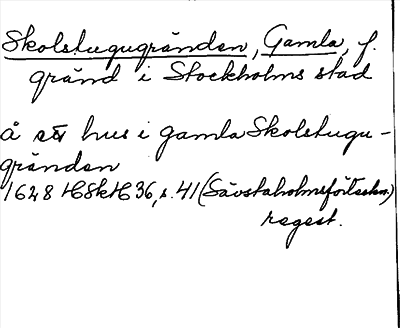 Skolstugugränden, Gamla, f.
gränd i Stockholms stad
å ett hus i gamla Skolstugu-
gränden
1628 HSkH 36, s. 41 (Sävstaholmsförteckn.)
regest.